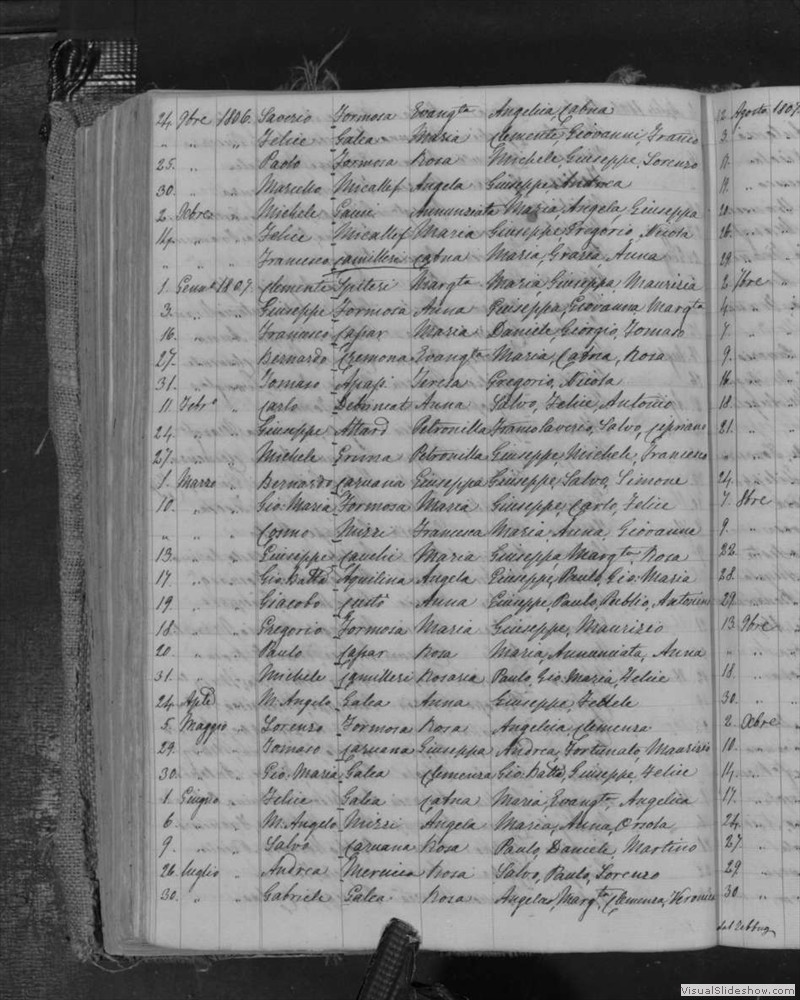 24 9bre 1806. Saverio Formosa Evangta Angelica, Catna
" " " Felice Galea Maria Clemente, Giovanni, Franco
25. " " Paolo Formosa Rosa Michele, Giuseppe, Lorenzo
30. " " Marcello Micallef Angela Giuseppe, Andrea
2 Xbre " Michele Gauci Annunziata Maria, Angela, Giuseppa
14. " " Felice Micallef Maria Giuseppe, Grigorio, Nicola
" " " Francesco Camilleri Catna Maria, Grazia, Anna
1. Genno 1807. Clemente Spiteri Margta Maria, Giuseppa, Maurizia
3. " " Giuseppe Formosa Anna Giuseppa, Giovanna, Margta
16. " " Francesco Capar Maria Daniele, Giorgio, Tomaso
27. " " Bernardo Cremona Evangta Maria, Catna, Rosa
31. " " Tomaso Apap Teresa Gregorio, Nicola
11 Febro " Carlo Anna Salvo, Felice, Antonio
24. " " Giuseppe Attard Petronilla Franco Saverio, Salvo, Cipriano
27. " " Michele Petronilla Giuseppe, Michele, Francesco
1. Marzo " Bernardo Caruana Giuseppa Giuseppe, Salvo, Simone
10. " " Gio: Maria Formosa Maria Giuseppe, Carlo, Felice
" " " Cosmo Mizzi Francesca Maria, Anna, Giovanna
13. " " Giuseppe Maria Giuseppa, Margta, Rosa
17 " " Gio: Batta Aquilina Angela Giuseppe, Paulo, Gio: Maria
19. " " Giacobo Anna Giuseppe, Paulo, Publio, Antonio
18 " " Gregorio Formosa Maria Giuseppe, Maurizio
20. " " Paulo Capar Rosa Maria, Annunciata, Anna
31. " " Michele Camilleri Rosaria Paulo, Gio: Maria, Felice
24. Aple " M. Angelo Galea Anna Giuseppe, Felice
5. Maggio " Lorenzo Formosa Rosa Angelica, Clemenza
29. " " Tomaso Caruana Giuseppa Andrea, Fortunato, Maurizio
30. " " Gio: Maria Galea Clemenza Gio: Batta, Giuseppe, Felice
1. Giugno " Felice Galea Catna Maria, Evangta, Angelica
6. " " M. Angelo Mizzi Angela Maria, Anna, Orsola
9. " " Salvo Caruana Rosa Paulo, Daniele, Martino
26. Luglio " Andrea Mernica Rosa Salvo, Paulo, Lorenzo
30. " " Gabriele Galea Rosa Angela, Margta, Clemenza, Veronica
12. Agosto 1807.
3. "
11.
19.
20.
26.
29.
2 7bre
4.
7.
9.
16.
18.
21.
"
24.
7. 8bre
9.
22.
28.
29.
13. 9bre
"
18.
30.
2. Xbre
10.
14.
17.
24.
27.
29.
30
dal Zebbug
VisualSlideshow.com